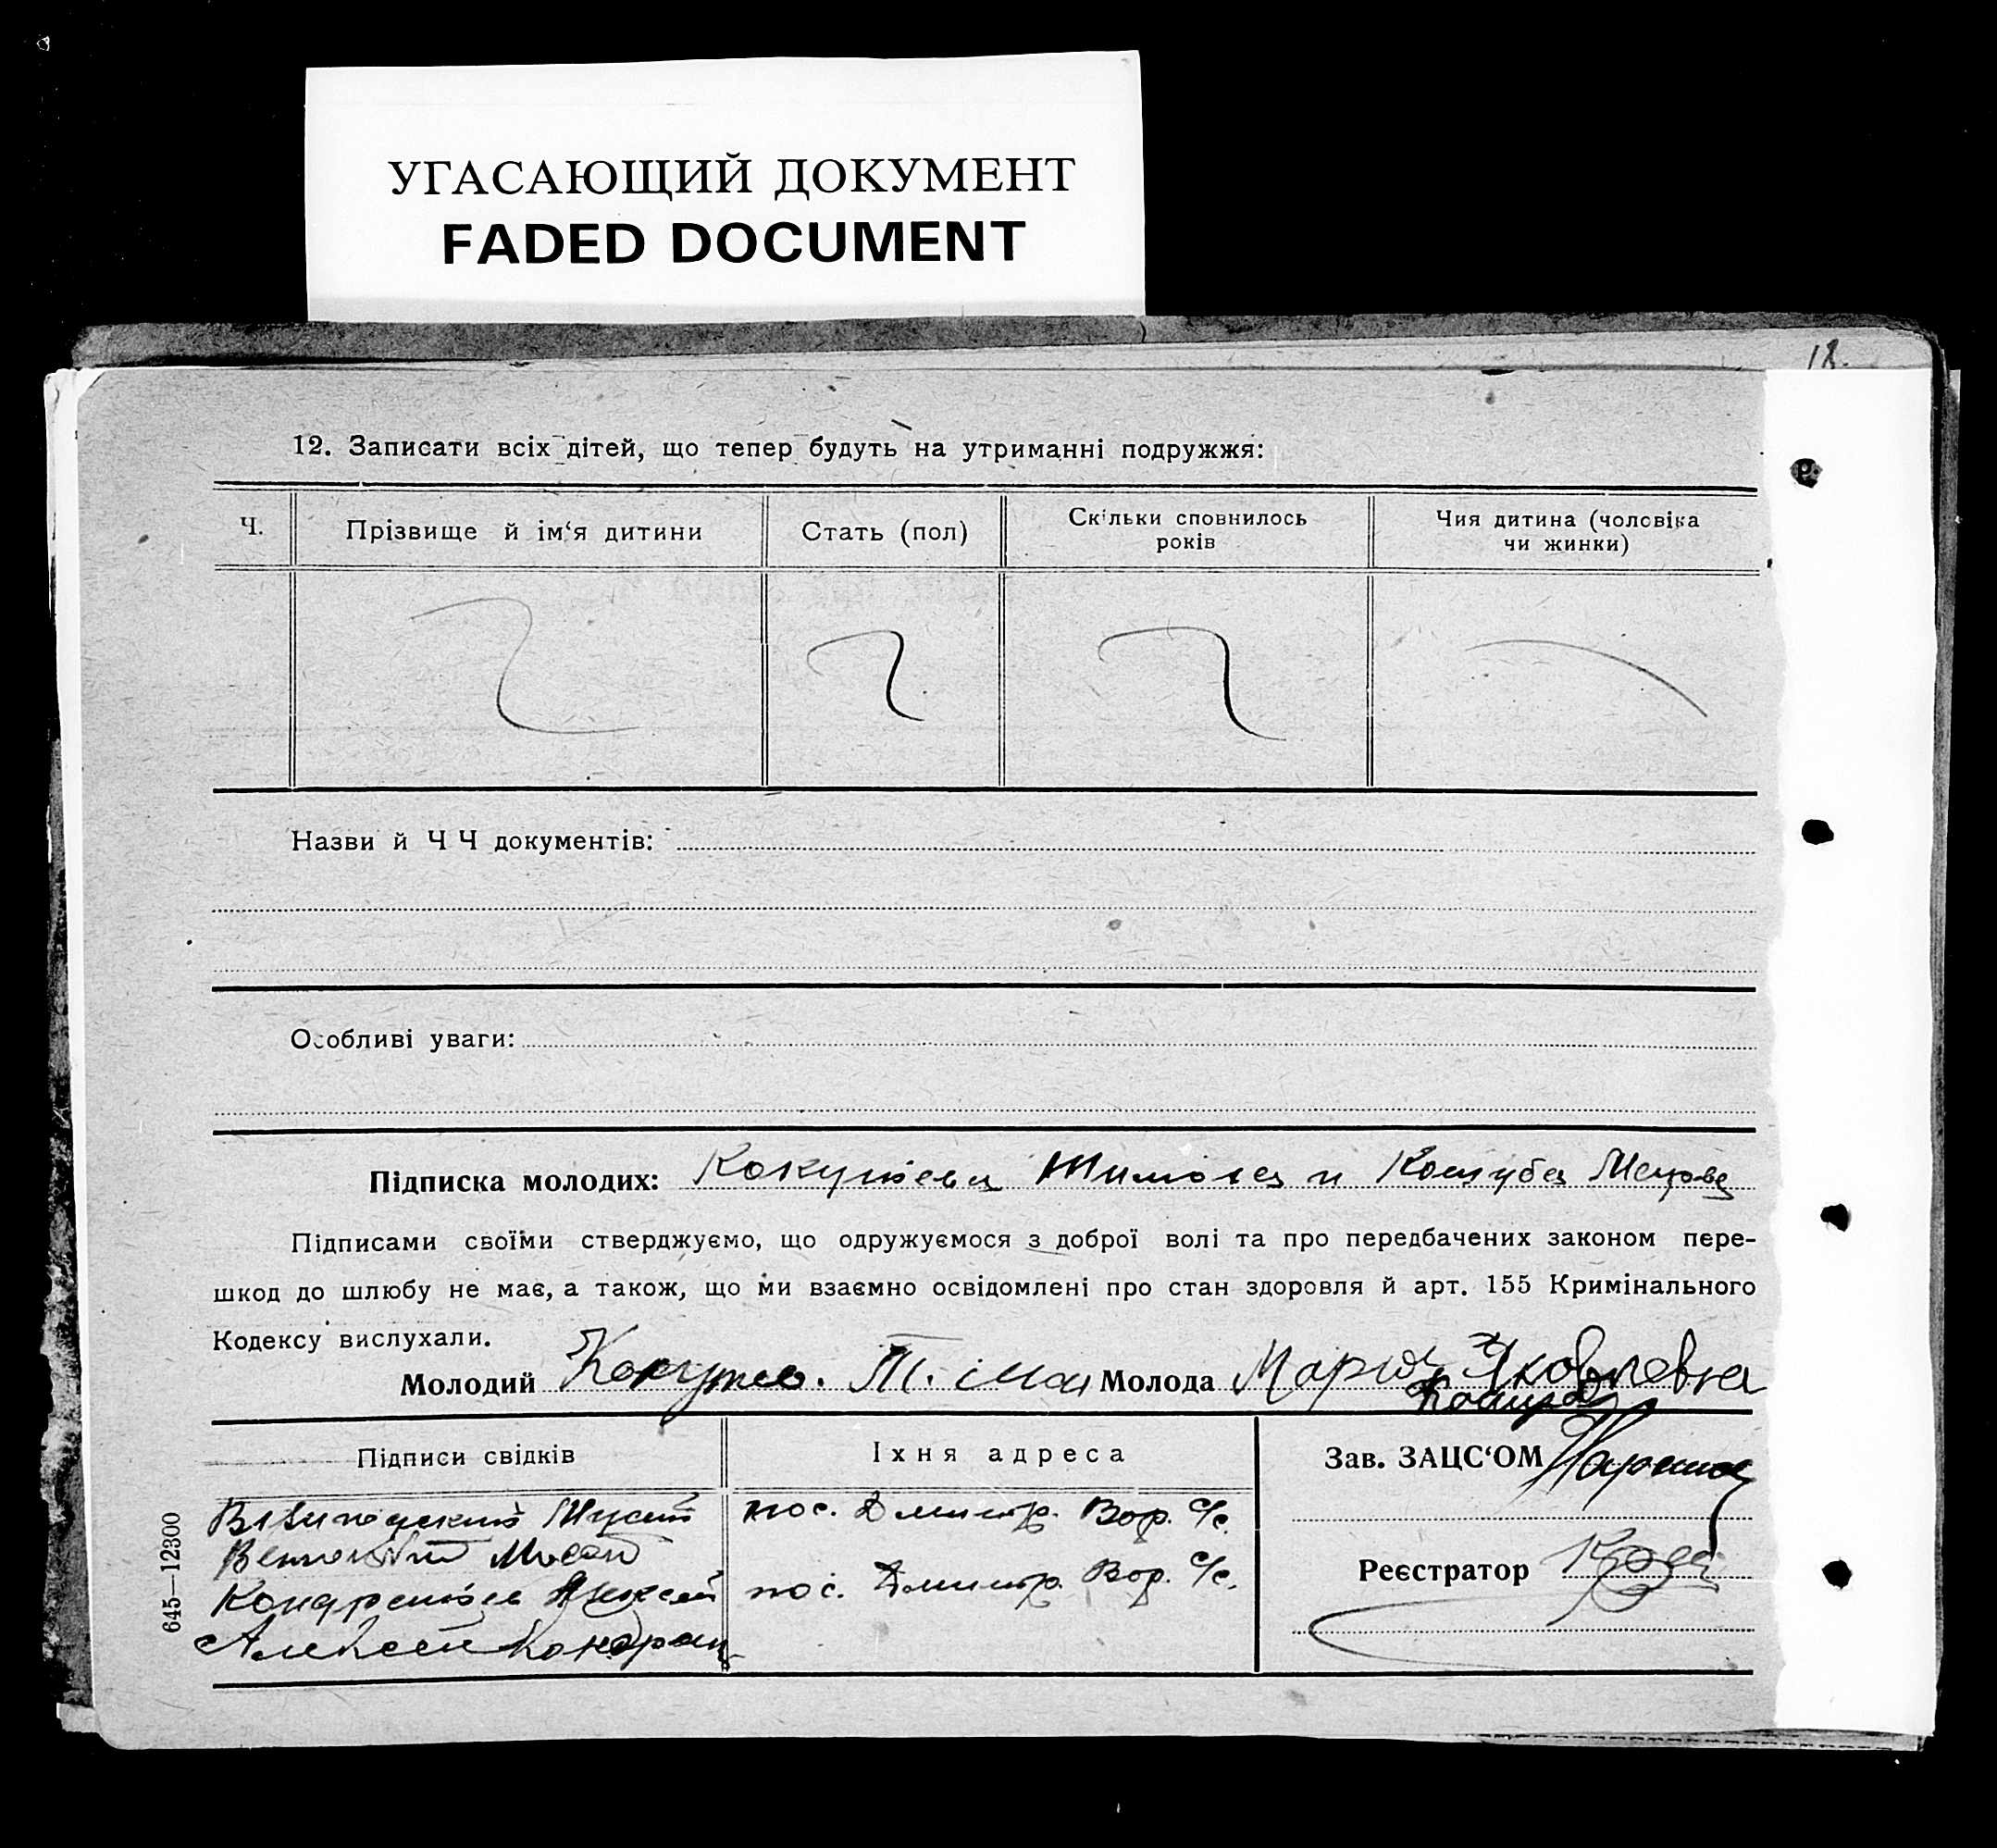 УГАСАЮЩИЙ ДОКУМЕНТ
FADED DOCUMENT
18.
12. Записати всіх дітей, що тепер будуть на утриманні подружжя:
Ч.
Прізвище й ім‘я дитини
Стать (пол)
Скільки сповнилось
років
Чия дитина (чоловіка
чи жинки)
Назви й Ч Ч документів:
Особливі уваги:
Підписка молодих: и
Підписами своїми стверджуємо, що одружуємося з доброї волі та про передбачених законом пере-
шкод до шлюбу не має, а також, що ми взаємно освідомлені про стан здоровля й арт. 155 Кримінального
Кодексу вислухали.
Молодий Т. Молода Мария Яковлевна
Підписи свідків
Їхня адреса
Зав. ЗАЦС‘ОМ
пос. Дмитр. Вор. С/с.
пос. Дмитр. Вор. С/с.
Алексей
Реєстратор
645—12300